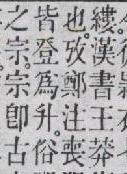 縷漢書王莽
也攷鄭注喪
皆登為升俗
之宗宗卽古